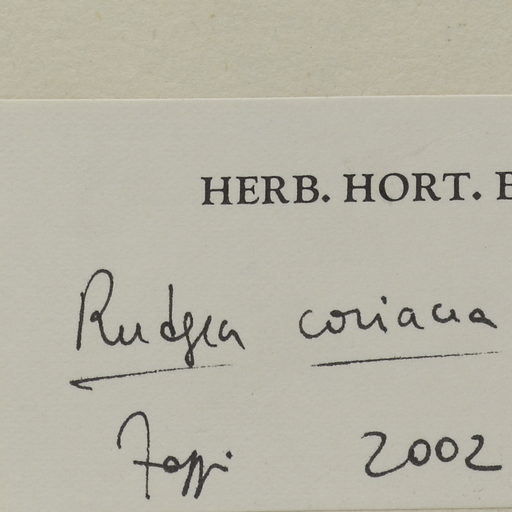 HERB. HORT. B
Rudgea coriacea
Zappi 2002